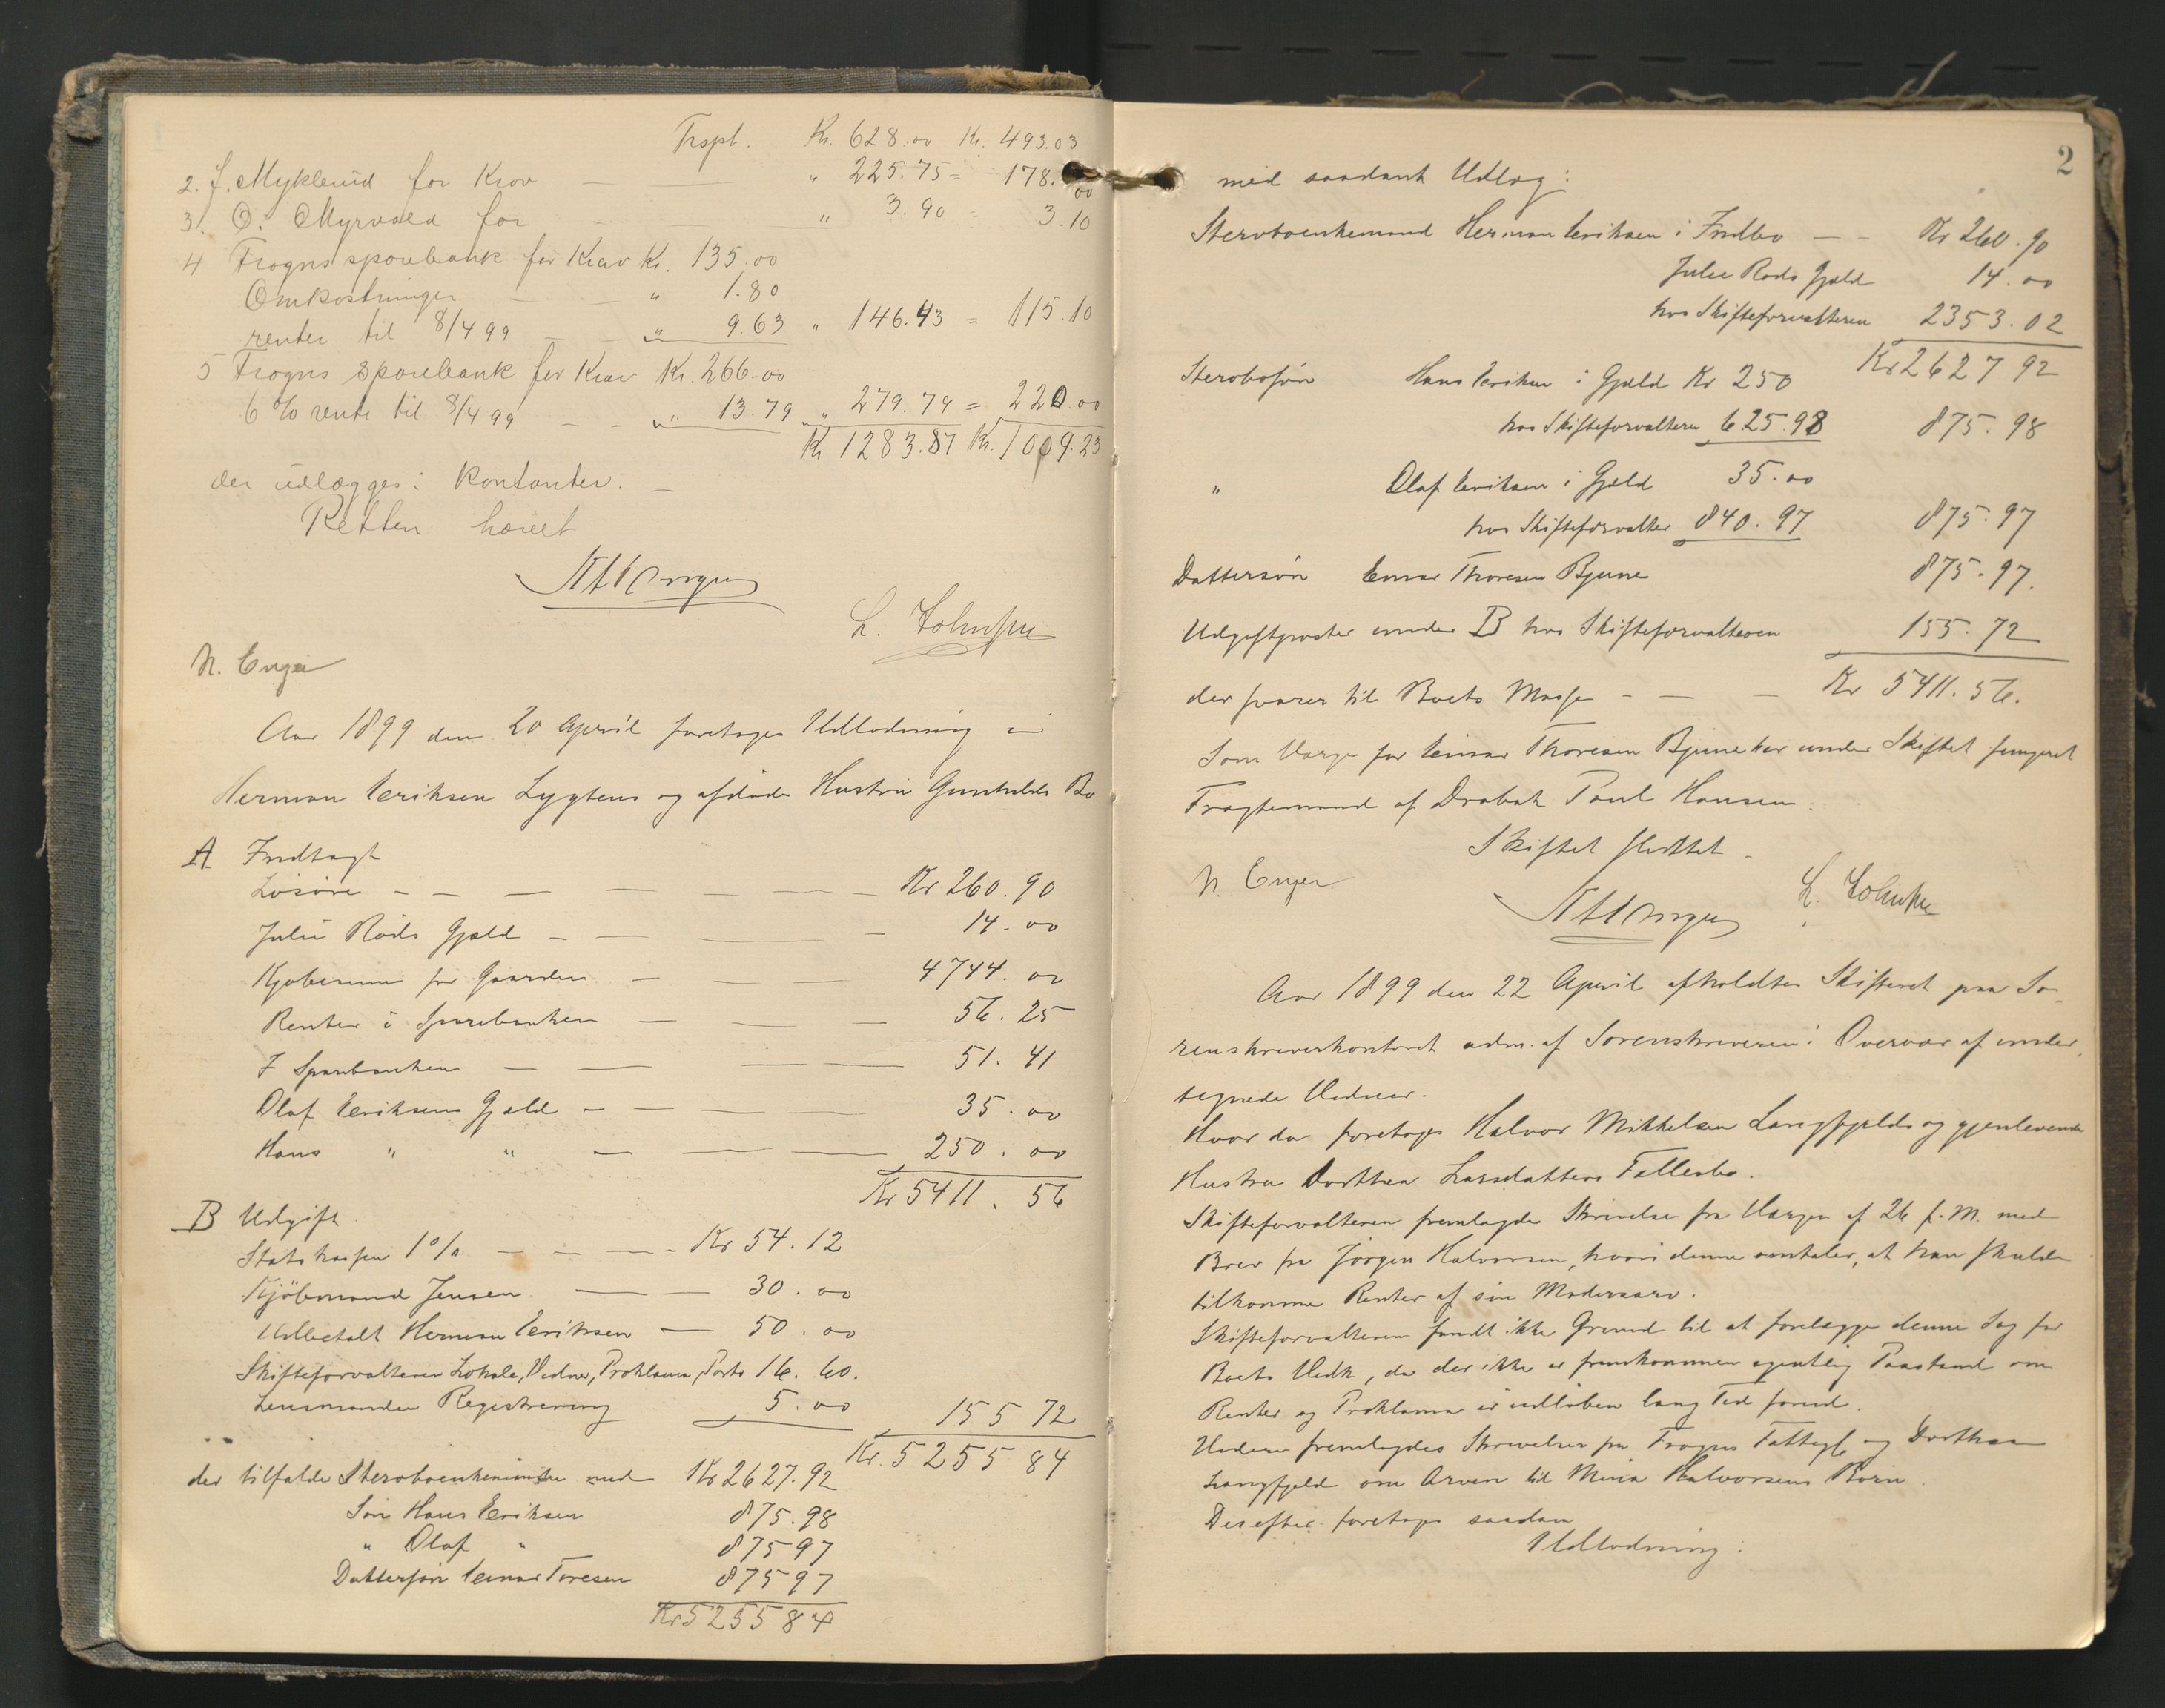 Trspt. Kr. 628.00 Kr. 493.03
2. J. Myklerud for Krav — " 225.75 = 178.00
3. O. Myrvold for — " 3.90 = 3.10
4 Frogns sparebank for Krav Kr. 135.00
Omkostninger — — " 1.80
renter til 8/4 99 — — " 9.63 " 146.43 = 115.10
5 Frogns Sparebank for Krav Kr. 266.00
6 % rente til 8/4 99 — — " 13.79 " 279.79 = 220.00
Kr 1283.87 Kr. 1009.23
der udlægges i Kontanter. —
Retten hævet
L. Johnsen
N. Enger
Aar 1899 den 20 April foretages Udlodning i
Herman Eriksen Lygtens og afdøde Hustru Gunhilds Bo
A Indtægt
Løsøre — — — Kr 260.90
Julie Røds Gjæld — — — 14.00
Kjøbesum for Gaarden — — — 4744.00
Renter i Sparebanken — — — 56.25
I Sparebanken — — — 51.41
Olaf Eriksens Gjæld — — — 35.00
Hans " " — — — 250.00
Kr 5411.56
B Udgift
Statskassen 1 % — — — Kr 54.12
Kjöbmand Jensen — — 30.00
Udbetalt Herman Eriksen — 50.00
Skifteforvalteren Lokale, Vidner, Proklama, Porto 16.60.
Lensmanden Registrering 5.00 155 72
Kr. 5255 84
der tilfalder Sterboenkemanden med Kr 2627.92
Søn Hans Eriksen 875.98
" Olaf " 875 97
Dattersøn Einar Toresen 875 97
Kr 5255 84
2
med saadant Udlæg:
Sterboenkemand Herman Eriksen i Indbo — — Kr 260.90
Julie Røds Gjæld 14.00
hos Skifteforvalteren 2353.02
Kr 2627 92
Sterbosøn Hans Eriksen i Gjæld Kr 250
hos Skifteforvalteren 625.98 875.98
" Olaf Eriksen i Gjæld 35.00
hos Skifteforvalter 840.97 875.97
Dattersøn Einar Thoresen Bjune 875.97.
Udgiftposter under B hos Skifteforvalteren 155.72
der svarer til Boets Masse — — — Kr 5411.56.
Som Værge for Einar Thoresen Bjune har under Skiftet fungeret
Fragtemand af Drøbak Paul Hansen.
Skiftet sluttet —
N. Enger
L. Johnsen
Aar 1899 den 22 April afholdtes Skifteret paa So-
renskriverkontoret adm. af Sorenskriveren i Overvær af under-
tegnede Vidner.
Hvor da foretoges Halvor Mikkelsen Langfjelds og gjenlevende
Hustru Dorthea Larsdatters Fællesbo.
Skifteforvalteren fremlagde Skrivelse fra Værgen af 26 f. M. med
Brev fra Jørgen Halvorsen, hvori denne omtaler, at han skulde
tilkomme Renter af sin Mødrearv.
Skifteforvalteren fandt ikke Grund til at forelægge denne Sag for
Boets Vedk, da der ikke er fremkommen egentlig Paastand om
Renter og Proklama er udløben lang Tid forud.
Videre fremlagdes Skrivelser fra Frogns Fattigk og Dorthea
Langfjeld om Arven til Mina Halvorsens Børn.
Derefter foretoges saadan
Udlodning: